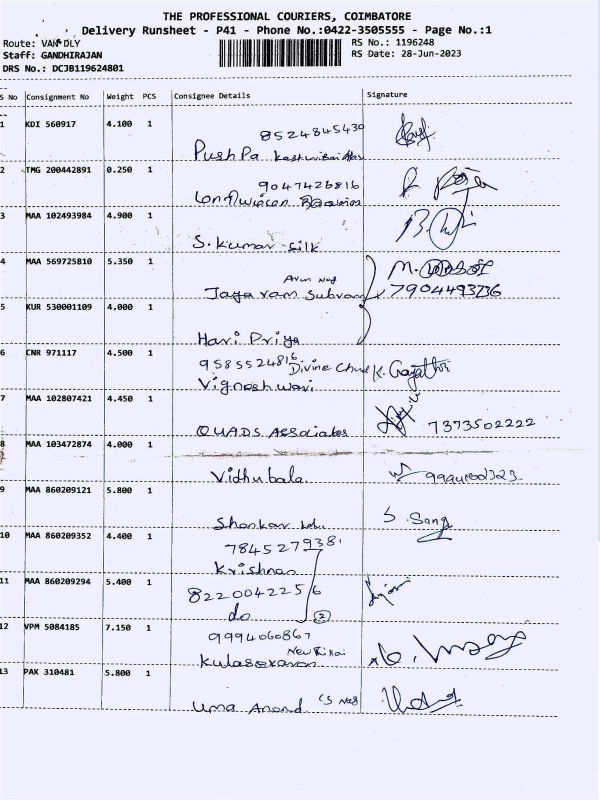 THE PROFESSIONAL COURIERS, COIMBATORE
Delivery Runsheet - P41 - Phone No.:0422-3505555 - Page No.:1
Route: VAN DLY
RS No.: 1196248
Staff: GANDHIRAJAN
RS Date: 28-Jun-2023
DRS No.: DCJB119624801
S No Consignment No Weight PCS Consignee Details Signature
1 KDI 560917 4.100 1 8524845430
Pushpa
2 TMG 200442891 0.250 1 9047426816
3 MAA 102493984 4.900 1
S. Kumar Silk
4 MAA 569725810 5.350 1 Arun Nag
Jayaram Subram 7904493736
5 KUR 530001109 4.000 1
Hari Priya
6 CNR 971117 4.500 1 9585524816 Divine K. Gayathri
Vignashwari
7 MAA 102807421 4.450 1
QUADS Associates 7373502222
8 MAA 103472874 4.000 1
Vidhubala
9 MAA 860209121 5.800 1
Shankar S. Sang
10 MAA 860209352 4.400 1 7845279381
Krishnan
11 MAA 860209294 5.400 1 8220042256
do 2
12 VPM 5084185 7.150 1 9994060867
Kulasekaran
13 PAK 310481 5.800 1
Uma Anand